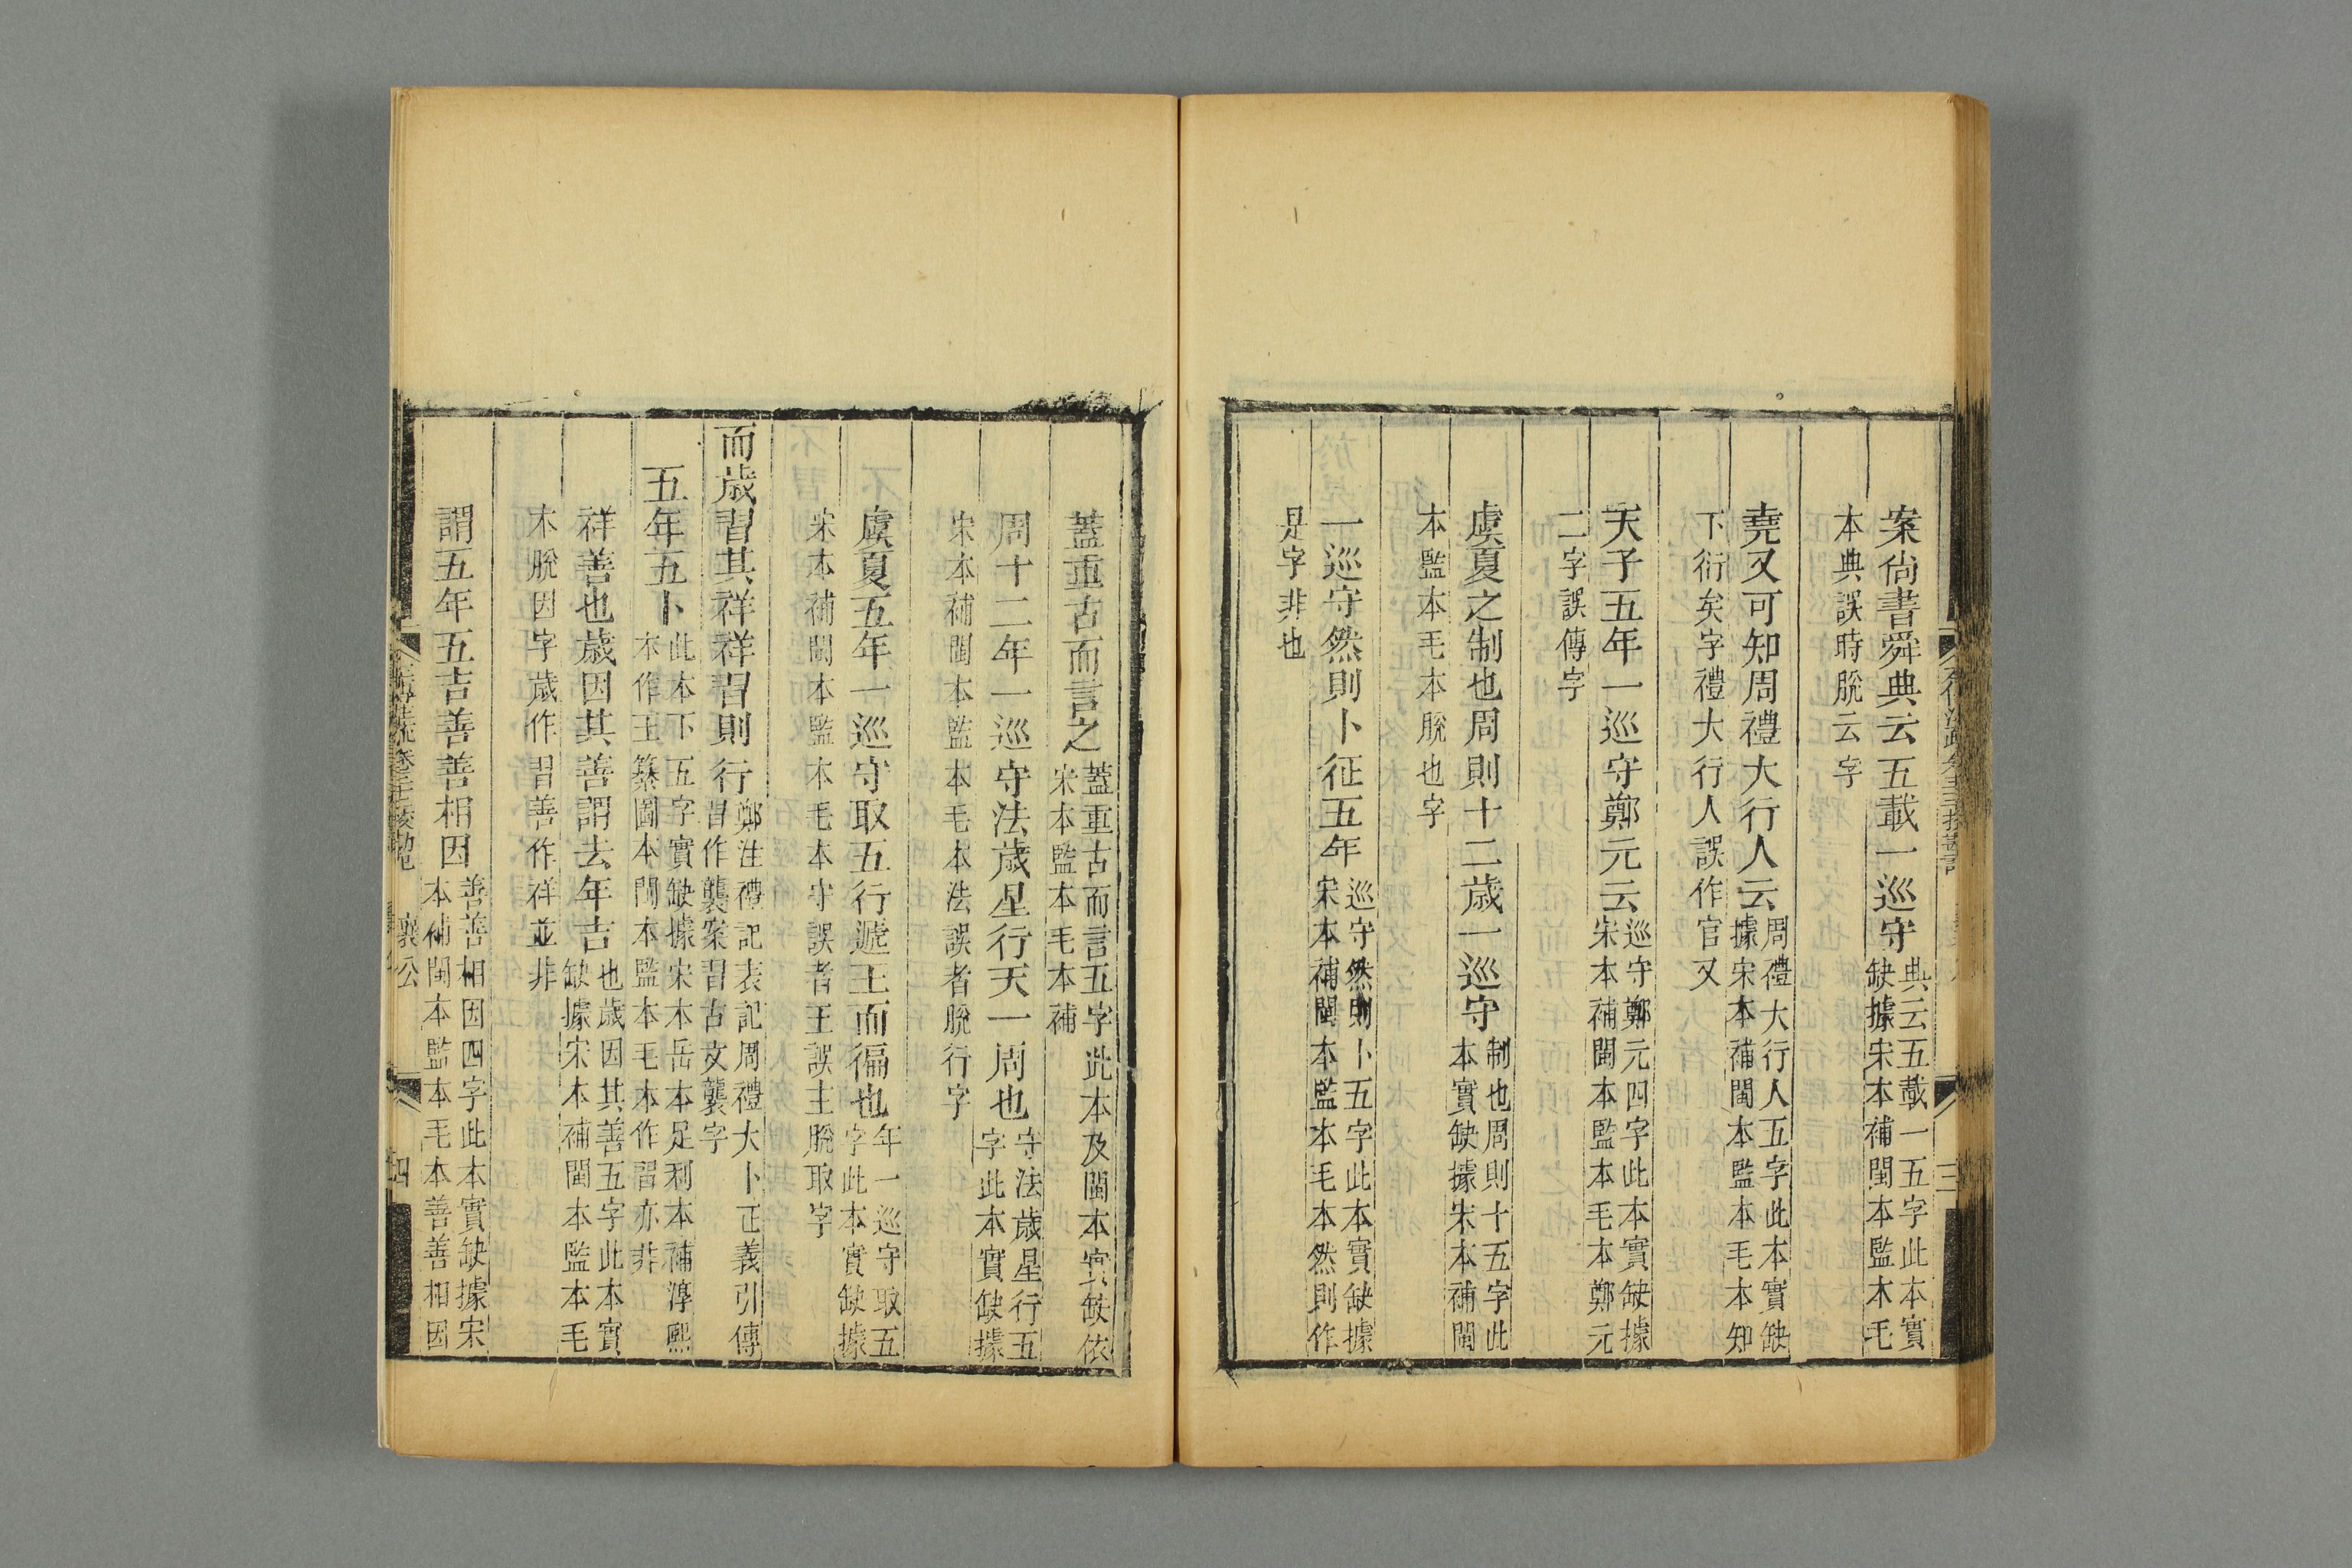 案尙書舜典云五載一巡守典云五載一五字此本實缺據宋本補閩本監本毛
本典誤時脫云字
堯又可知周禮大行人云周禮大行人五字此本實缺據宋本補閩本監本毛本知
下衍矣字禮大行人誤作官又
天子五年一巡守鄭元云巡守鄭元四字此本實缺據宋本補閩本監本毛本鄭元
二字誤傳字
虞夏之制也周則十二歲一巡守制也周則十五字此本實缺據宋本補閩
本監本毛本脫也字
一巡守然則卜征五年巡守然則卜五字此本實缺據宋本補閩本監本毛本然則作
是字非也
蓋重古而言之蓋重古而言五字此本及閩本實缺依宋本監本毛本補
周十二年一巡守法歲星行天一周也守法歲星行五字此本實缺據
宋本補閩本監本毛本法誤者脫行字
虞夏五年一巡守取五行遞王而徧也年一巡守取五字此本實缺據
宋本補閩本監本毛本守誤者王誤主脫取字
而歲習其祥祥習則行鄭注禮記表記周禮大卜正義引傳習作襲案習古文襲字
五年五卜此本下五字實缺據宋本岳本足利本補淳熙本作王纂圖本閩本監本毛本作習亦非
祥善也歲因其善謂去年吉也歲因其善五字此本實缺據宋本補閩本監本毛
本脫因字歲作習善作祥並非
謂五年五吉善善相因善善相因四字此本實缺據宋本補閩本監本毛本善善相因
襄公
四